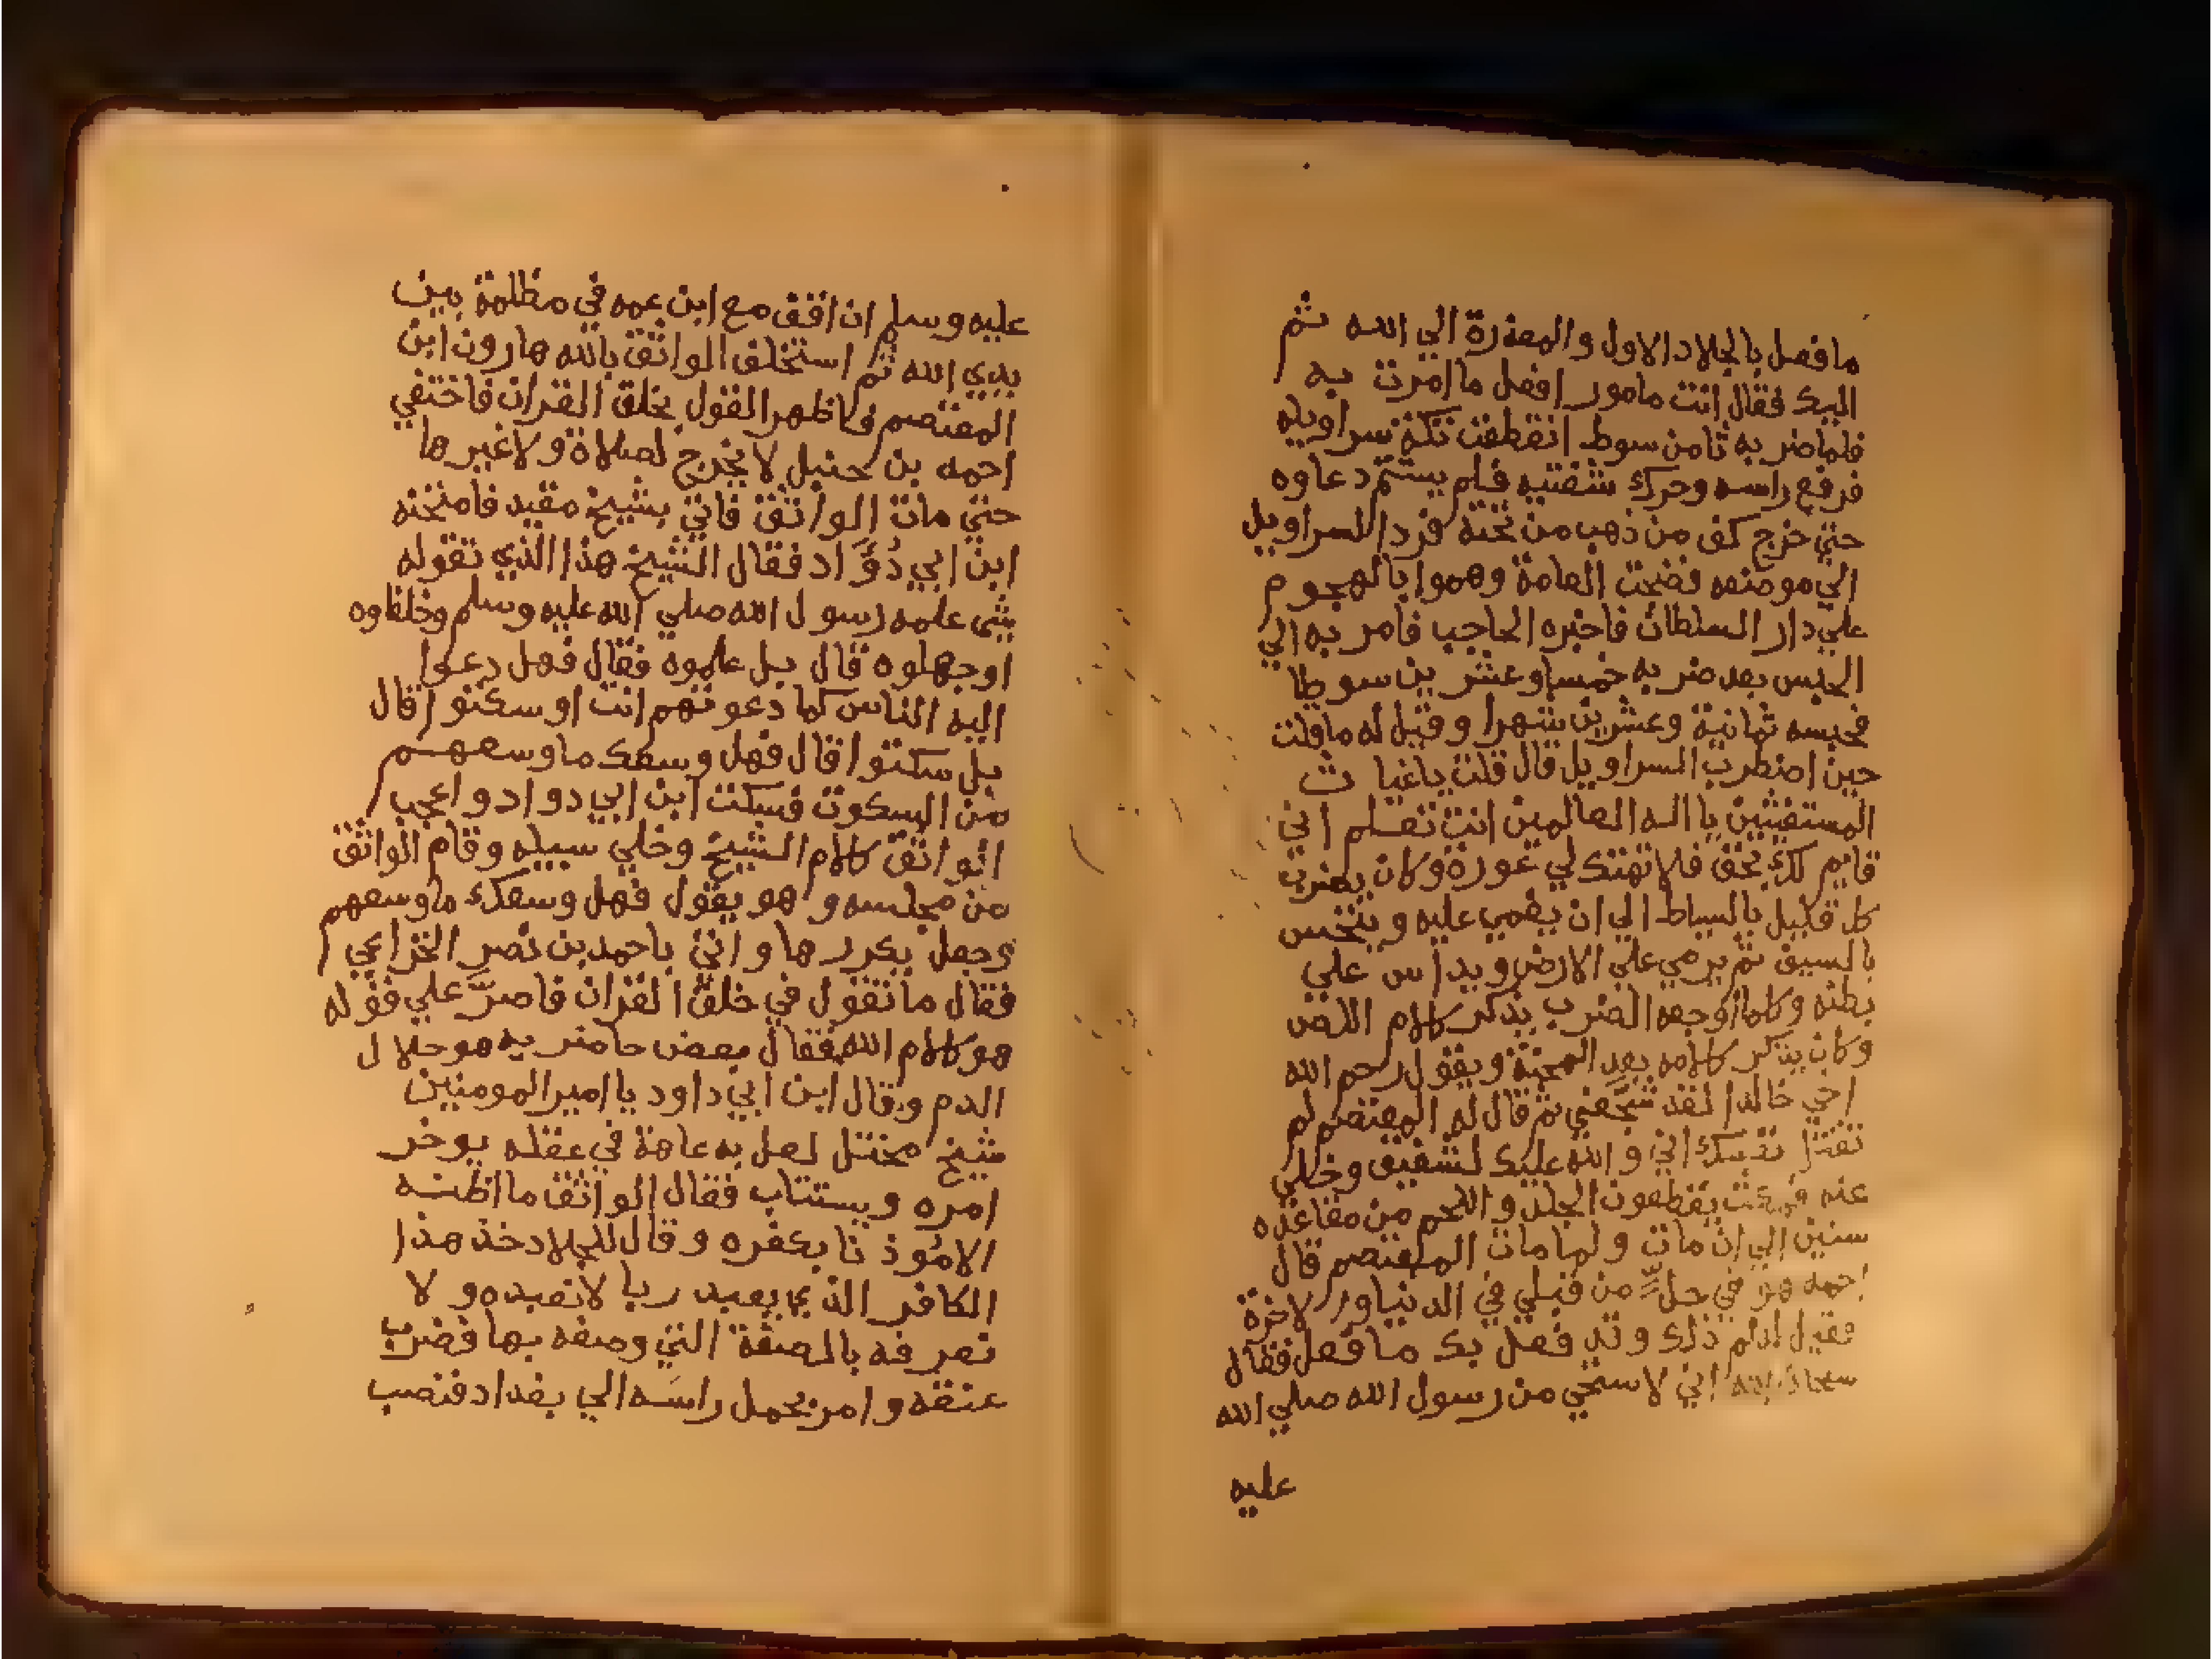 ما فعل بالجلاد الاول والمعذرة الي الله ثم
اليك فقال انت مامور افعل ما امرت به
فلما ضربه ثامن سوط انقطعت تكة سراويله
فرفع راسه وحرك شفتيه فلم يستتم دعاوه
حتي خرج كف من ذهب من تحته فرد السراويل
الي موضعه فضجت العامة وهموا بالهجوم
علي دار السلطان فاخبره الحاجب فامر به الي
الحبس بعد ضربه خمسا وعشرين سوطا
فحبسه ثمانية وعشرين شهرا وقيل له ما قلت
حين اضطرب السراويل قال قلت يا غياث
المستغيثين يا اله العالمين انت تعلم اني
قايم لك بحق فلا تهتك لي عورة وكان يضرب
كل قليل بالسياط الي ان يغمي عليه وينخس
بالسيف ثم يرمي علي الارض ويداس علي
بطنه وكلما اوجعه الضرب يذكر كلام اللص
وكان يتذكر كلامه بعد المحنة ويقول رحم الله
اخي خالدا لقد شجعني ثم قال له المعتصم لم
تقتل نفسك اني والله عليك لشفيق وخلي
عنه يقطعون الجلد واللحم من مقاعده
سنين الي ان مات ولما مات المعتصم قال
احمد هو في حل من قبلي في الدنيا والاخرة
فقيل له لم ذلك وقد فعل بك ما فعل فقال
سبحان الله اني لاستحي من رسول الله صلي الله
عليه
عليه وسلم ان اقف مع ابن عمه في مظلمة بين
يدي الله ثم استخلف الواثق بالله هارون ابن
المعتصم فاظهر القول بخلق القران فاختفي
احمد بن حنبل لا يخرج لصلاة ولا غيرها
حتي مات الواثق فاتي بشيخ مقيد فامتحنه
ابن ابي دُؤَاد فقال الشيخ هذا الذي تقوله
شي علمه رسول الله صلي الله عليه وسلم وخلفاوه
او جهلوه قال بل علموه فقال فهل دعوا
اليه الناس كما دعوتهم انت او سكتوا قال
بل سكتوا قال فهل وسعك ما وسعهم
من السكوت فسكت ابن ابي دواد واعجب
الواثق كلام الشيخ وخلي سبيله وقام الواثق
من مجلسه وهو يقول فهل وسعك ما وسعهم
وجعل يكررها واتي باحمد بن نصر الخزاعي
فقال ما تقول في خلق القران فاصرّ علي قوله
هو كلام الله فقال بعض حاضريه هو حلال
الدم وقال ابن ابي داود يا امير المومنين
شيخ مختل لعل به عاهة في عقله يوخر
امره ويستتاب فقال الواثق ما اظنه
الا مُوذنا بكفره وقال للجلاد خذ هذا
الكافر الذي يعبد ربا لا نعبده ولا
نعرفه بالصفة التي وصفه بها فضرب
عنقه وامر بحمل راسه الي بغداد فنصب